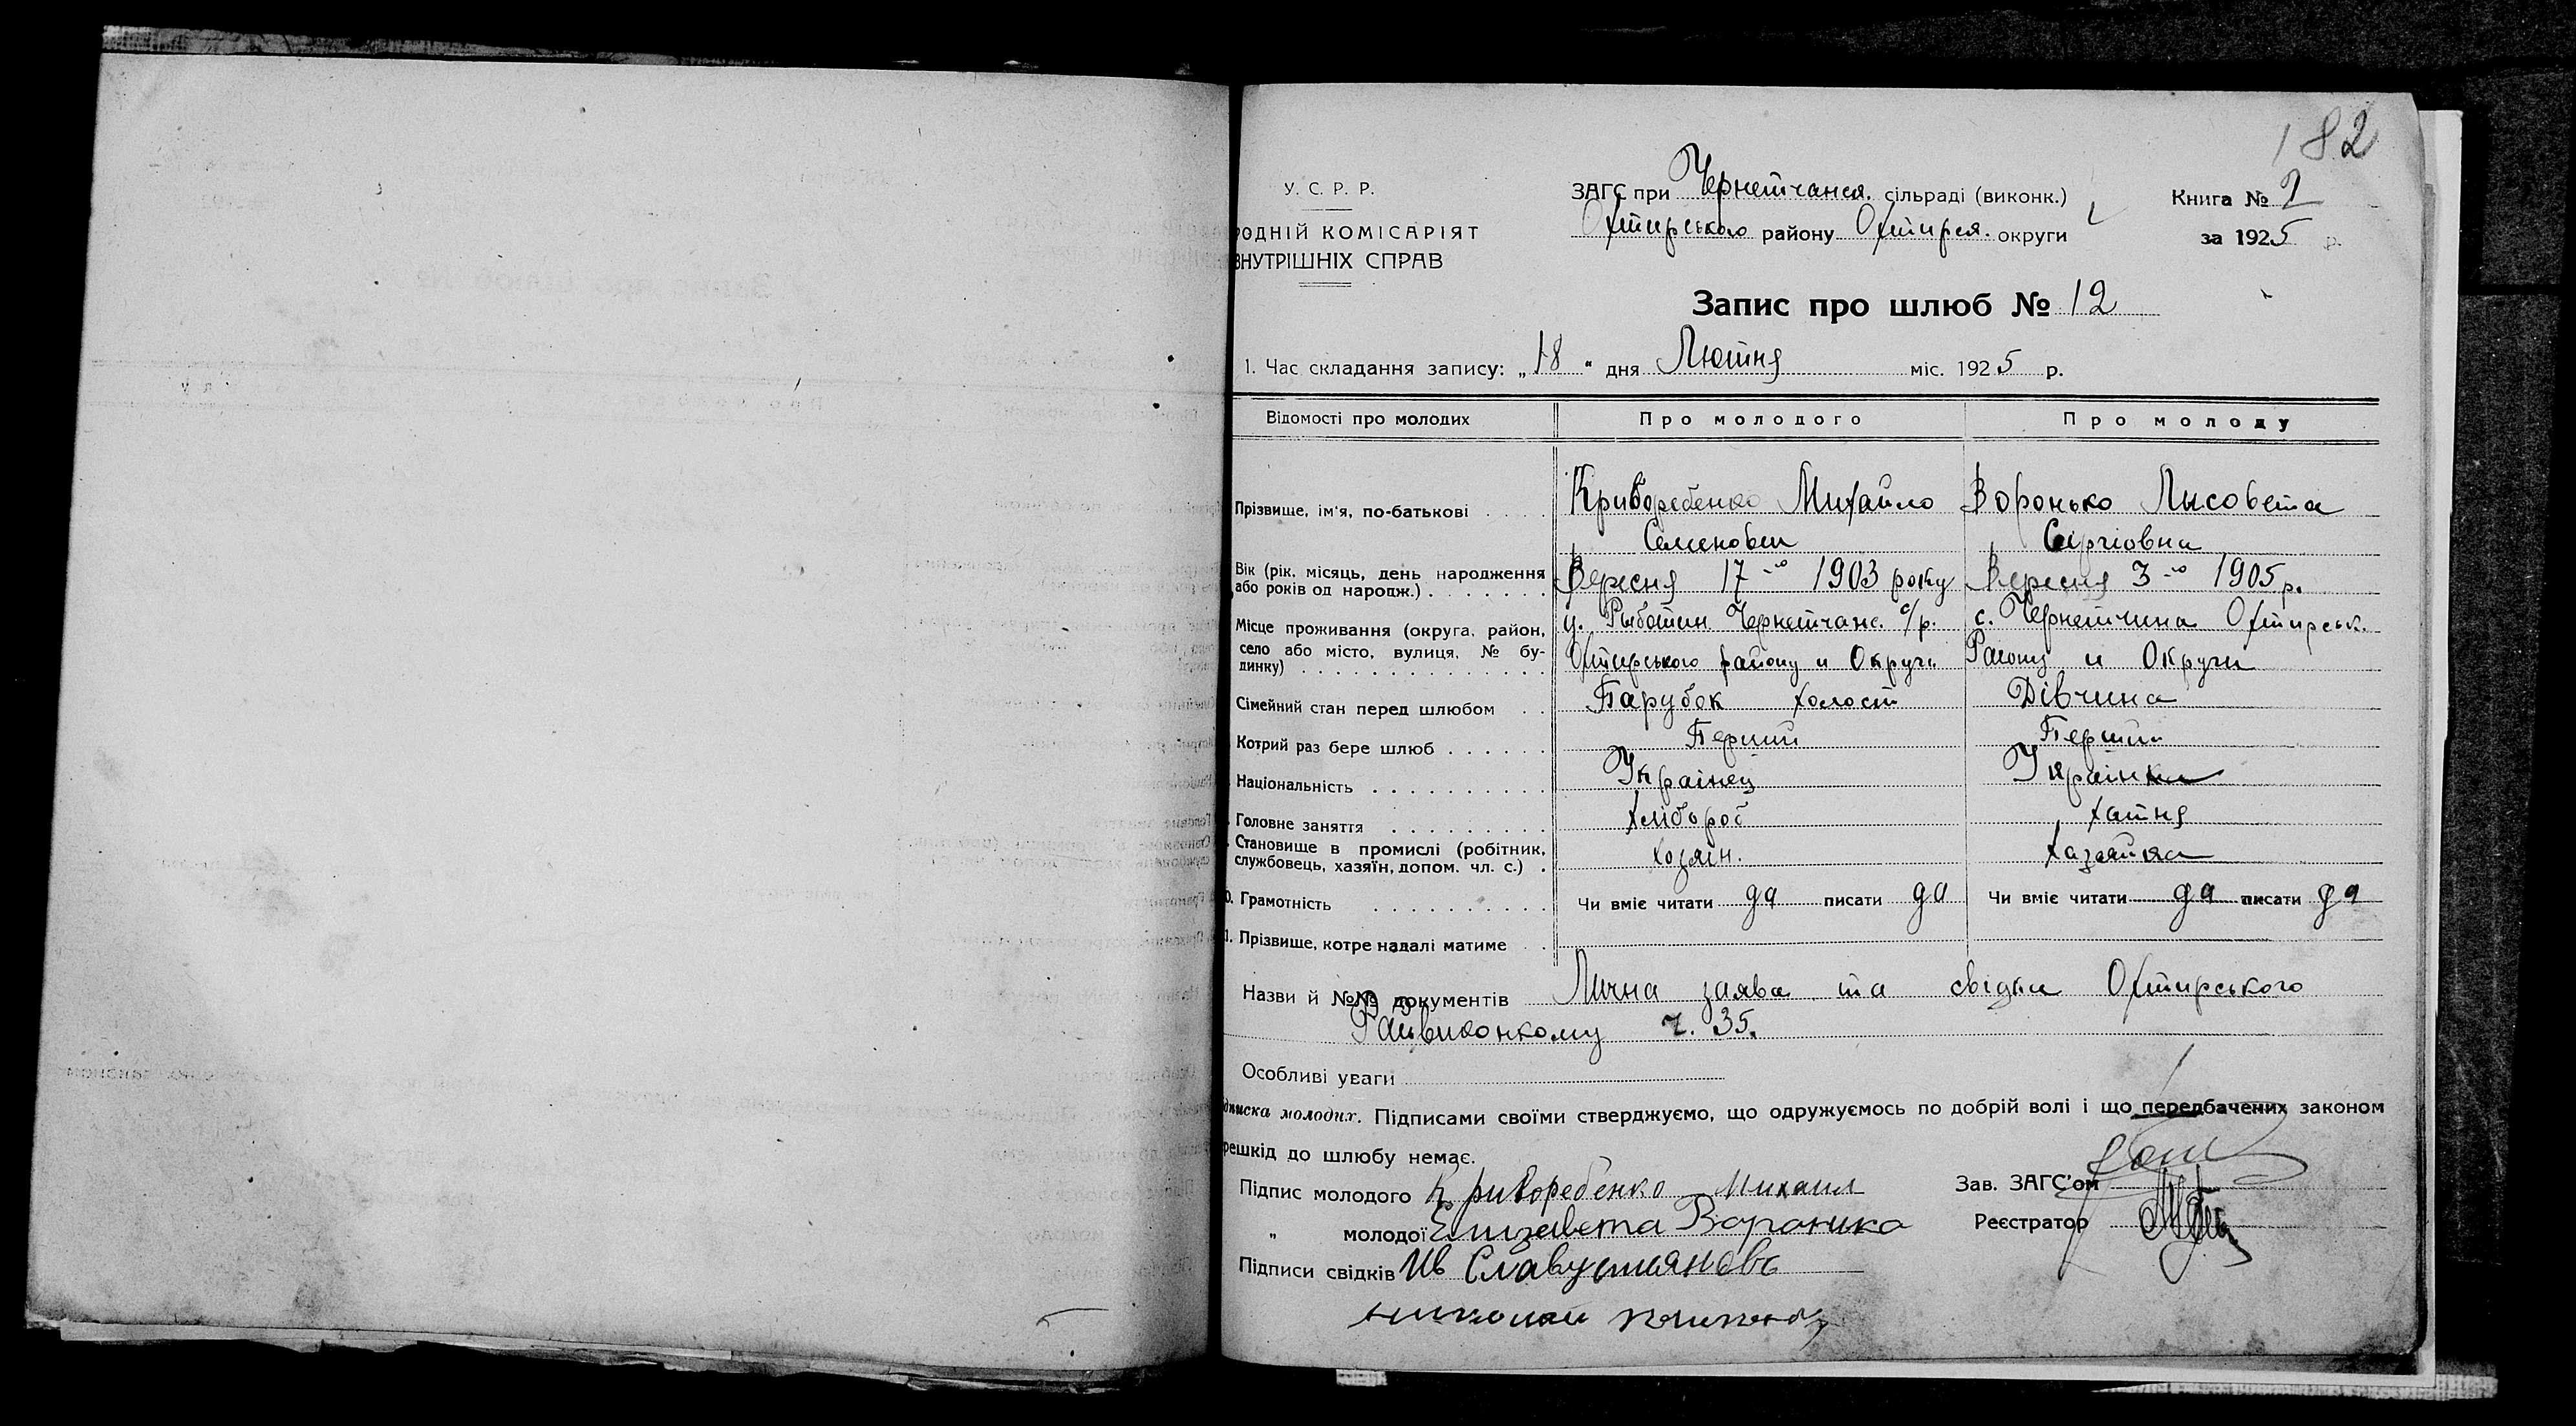 182
У. С. Р. Р.
РОДНІЙ КОМІСАРІЯТ
ВНУТРІШНІХ СПРАВ
ЗАГС при Чернетчанся. сільраді (виконк.)
Охтирського району Охтирся. округи
Книга № 2
за 1925 р.
Запис про шлюб № 12
1. Час складання запису: „18“ дня Лютня міс. 1925 р.
Відомості про молодих Про молодого Про молоду
Прізвище, ім'я, по-батькові . . . . Криворебенко Михайло Воронько Лысовета
Семенович Сергіовна
Вік (рік, місяць, день народження або років од народж.) . . . . . . . Вересня 17-го 1903 року Вересня 3-го 1905 р.
Місце проживання (округа, район, село або місто, вулиця, № будинку) . . . . . . . . . . . . . . х. Рыботин Чернетчанс. с/р. с. Чернетчина Охтирськ.
Охтирського району и Округи Раіону и Округи
Сімейний стан перед шлюбом . . Парубок холост Дівчина
Котрий раз бере шлюб . . . . . . Перший Перший
Національність . . . . . . . . . . Украінец Украінка
Головне заняття . . . . . . . . . Хлібороб хатня
Становище в промислі (робітник, службовець, хазяїн, допом. чл. с.) . хозяін. хазяйка
0. Грамотність . . . . . . . . . . Чи вміє читати да писати да Чи вміє читати да писати да
1. Прізвище, котре надалі матиме . .
Назви й №№ документів Лична заява та свідки Охтирського
Райвиконкому ч. 35.
Особливі уваги
дписка молодих. Підписами своїми стверджуємо, що одружуємось по добрій волі і що передбачених законом
решкід до шлюбу немає.
Підпис молодого Криворебенко Михаил Зав. ЗАГС'ом
„ молодої Елизавета Воронька Реєстратор
Підписи свідків Ив
николай